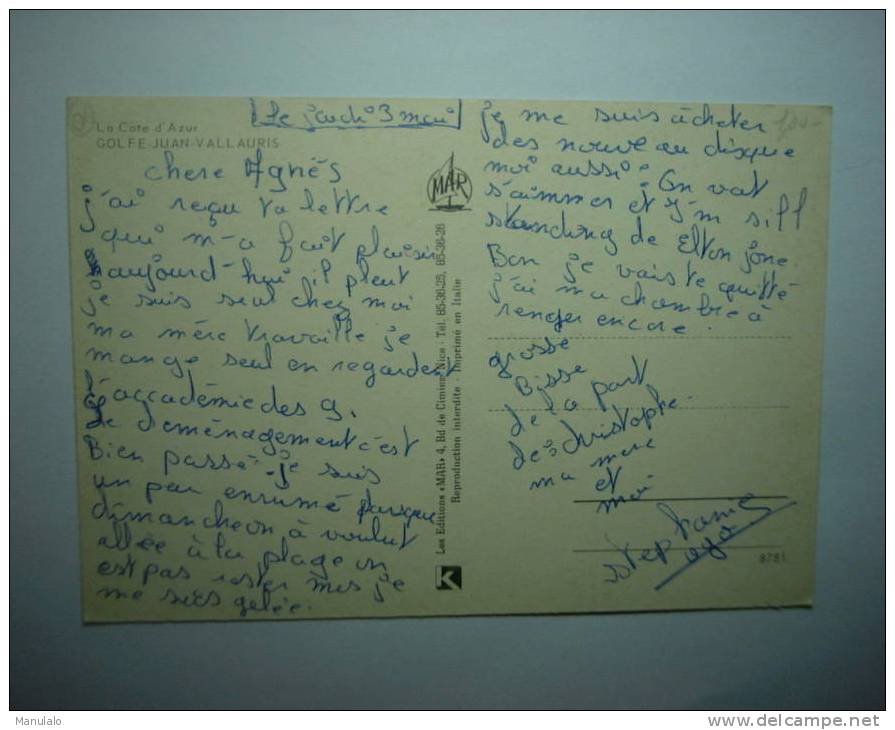 La Côte d'Azur
GOLFE-JUAN-VALLAURIS
Le jeudi 3 mai
chere Agnés
j'ai reçu ta lettre
qui m-a fait plaisir
aujourd-hui il pleut
je suis seul chez moi
ma mére travaille je
mange seul en regardent
l'accadémie des 9.
Le deménagement c'est
Bien passé - je suis
un peu enrumé parsque
dimanche on à voulut
allée à la plage on
est pas rester mes je
me suis gelée.
MAR
Les Editions «MAR» 4, Bd de Cimiez Nice - Tel. 85-36-25, 85-36-26
Reproduction interdite - Imprimé en Italie
K
je me suis acheter
des nouveau disque
moi aussi: On vat
s'aimmer et I'm sill
standing de Elton jone.
Bon je vais te quitté
j'ai ma chambre à
renger encore.
grosse
Bisse
de la part
de: christophe
ma mere
et
moi
stephanie
8751
Manulalo
www.delcampe.net